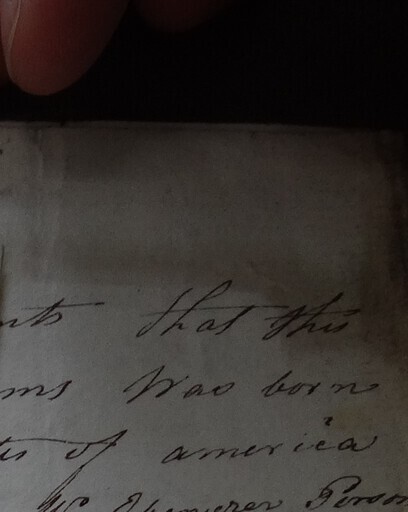 nts that this
ms Was born
ts of america
Ebenezer Person